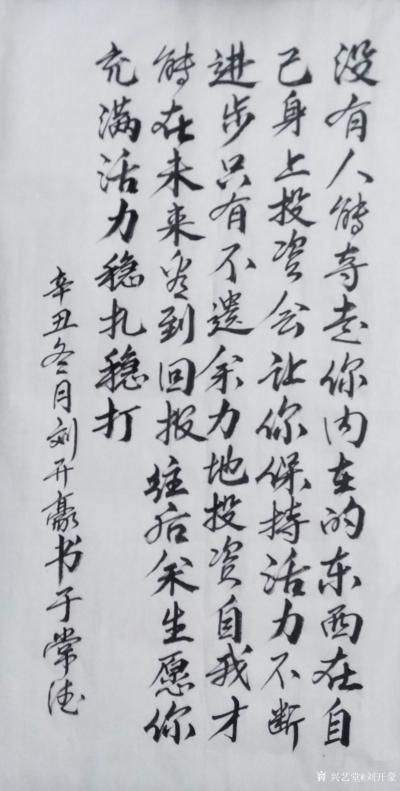 没有人能夺走你内在的东西在自
己身上投资会让你保持活力不断
进步只有不遗余力地投资自我才
能在未来得到回报往后余生愿你
充满活力稳扎稳打
辛丑冬月刘开豪书于常德
兴艺堂@刘开豪